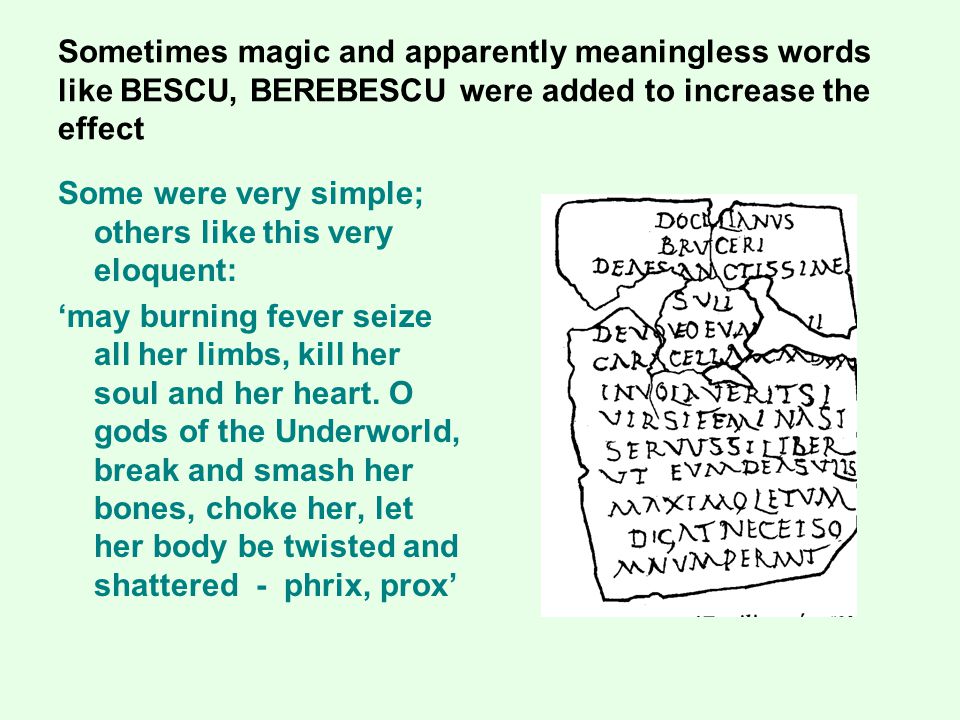 Sometimes magic and apparently meaningless words
like BESCU, BEREBESCU were added to increase the
effect
Some were very simple;
others like this very
eloquent:
‘may burning fever seize
all her limbs, kill her
soul and her heart. O
gods of the Underworld,
break and smash her
bones, choke her, let
her body be twisted and
shattered - phrix, prox’
DOCILIANVS
BRVCERI
DEAESANCTISSIME
SVLI
DEVOVEOEVM
CARACELLAM
INVOLAVERITSI
VIRSIFEMINASI
SERVVSSILIBER
VT EVMDEASVLIS
MAXIMOLETVM
DIGATNECEISO
MNVMPERMIT